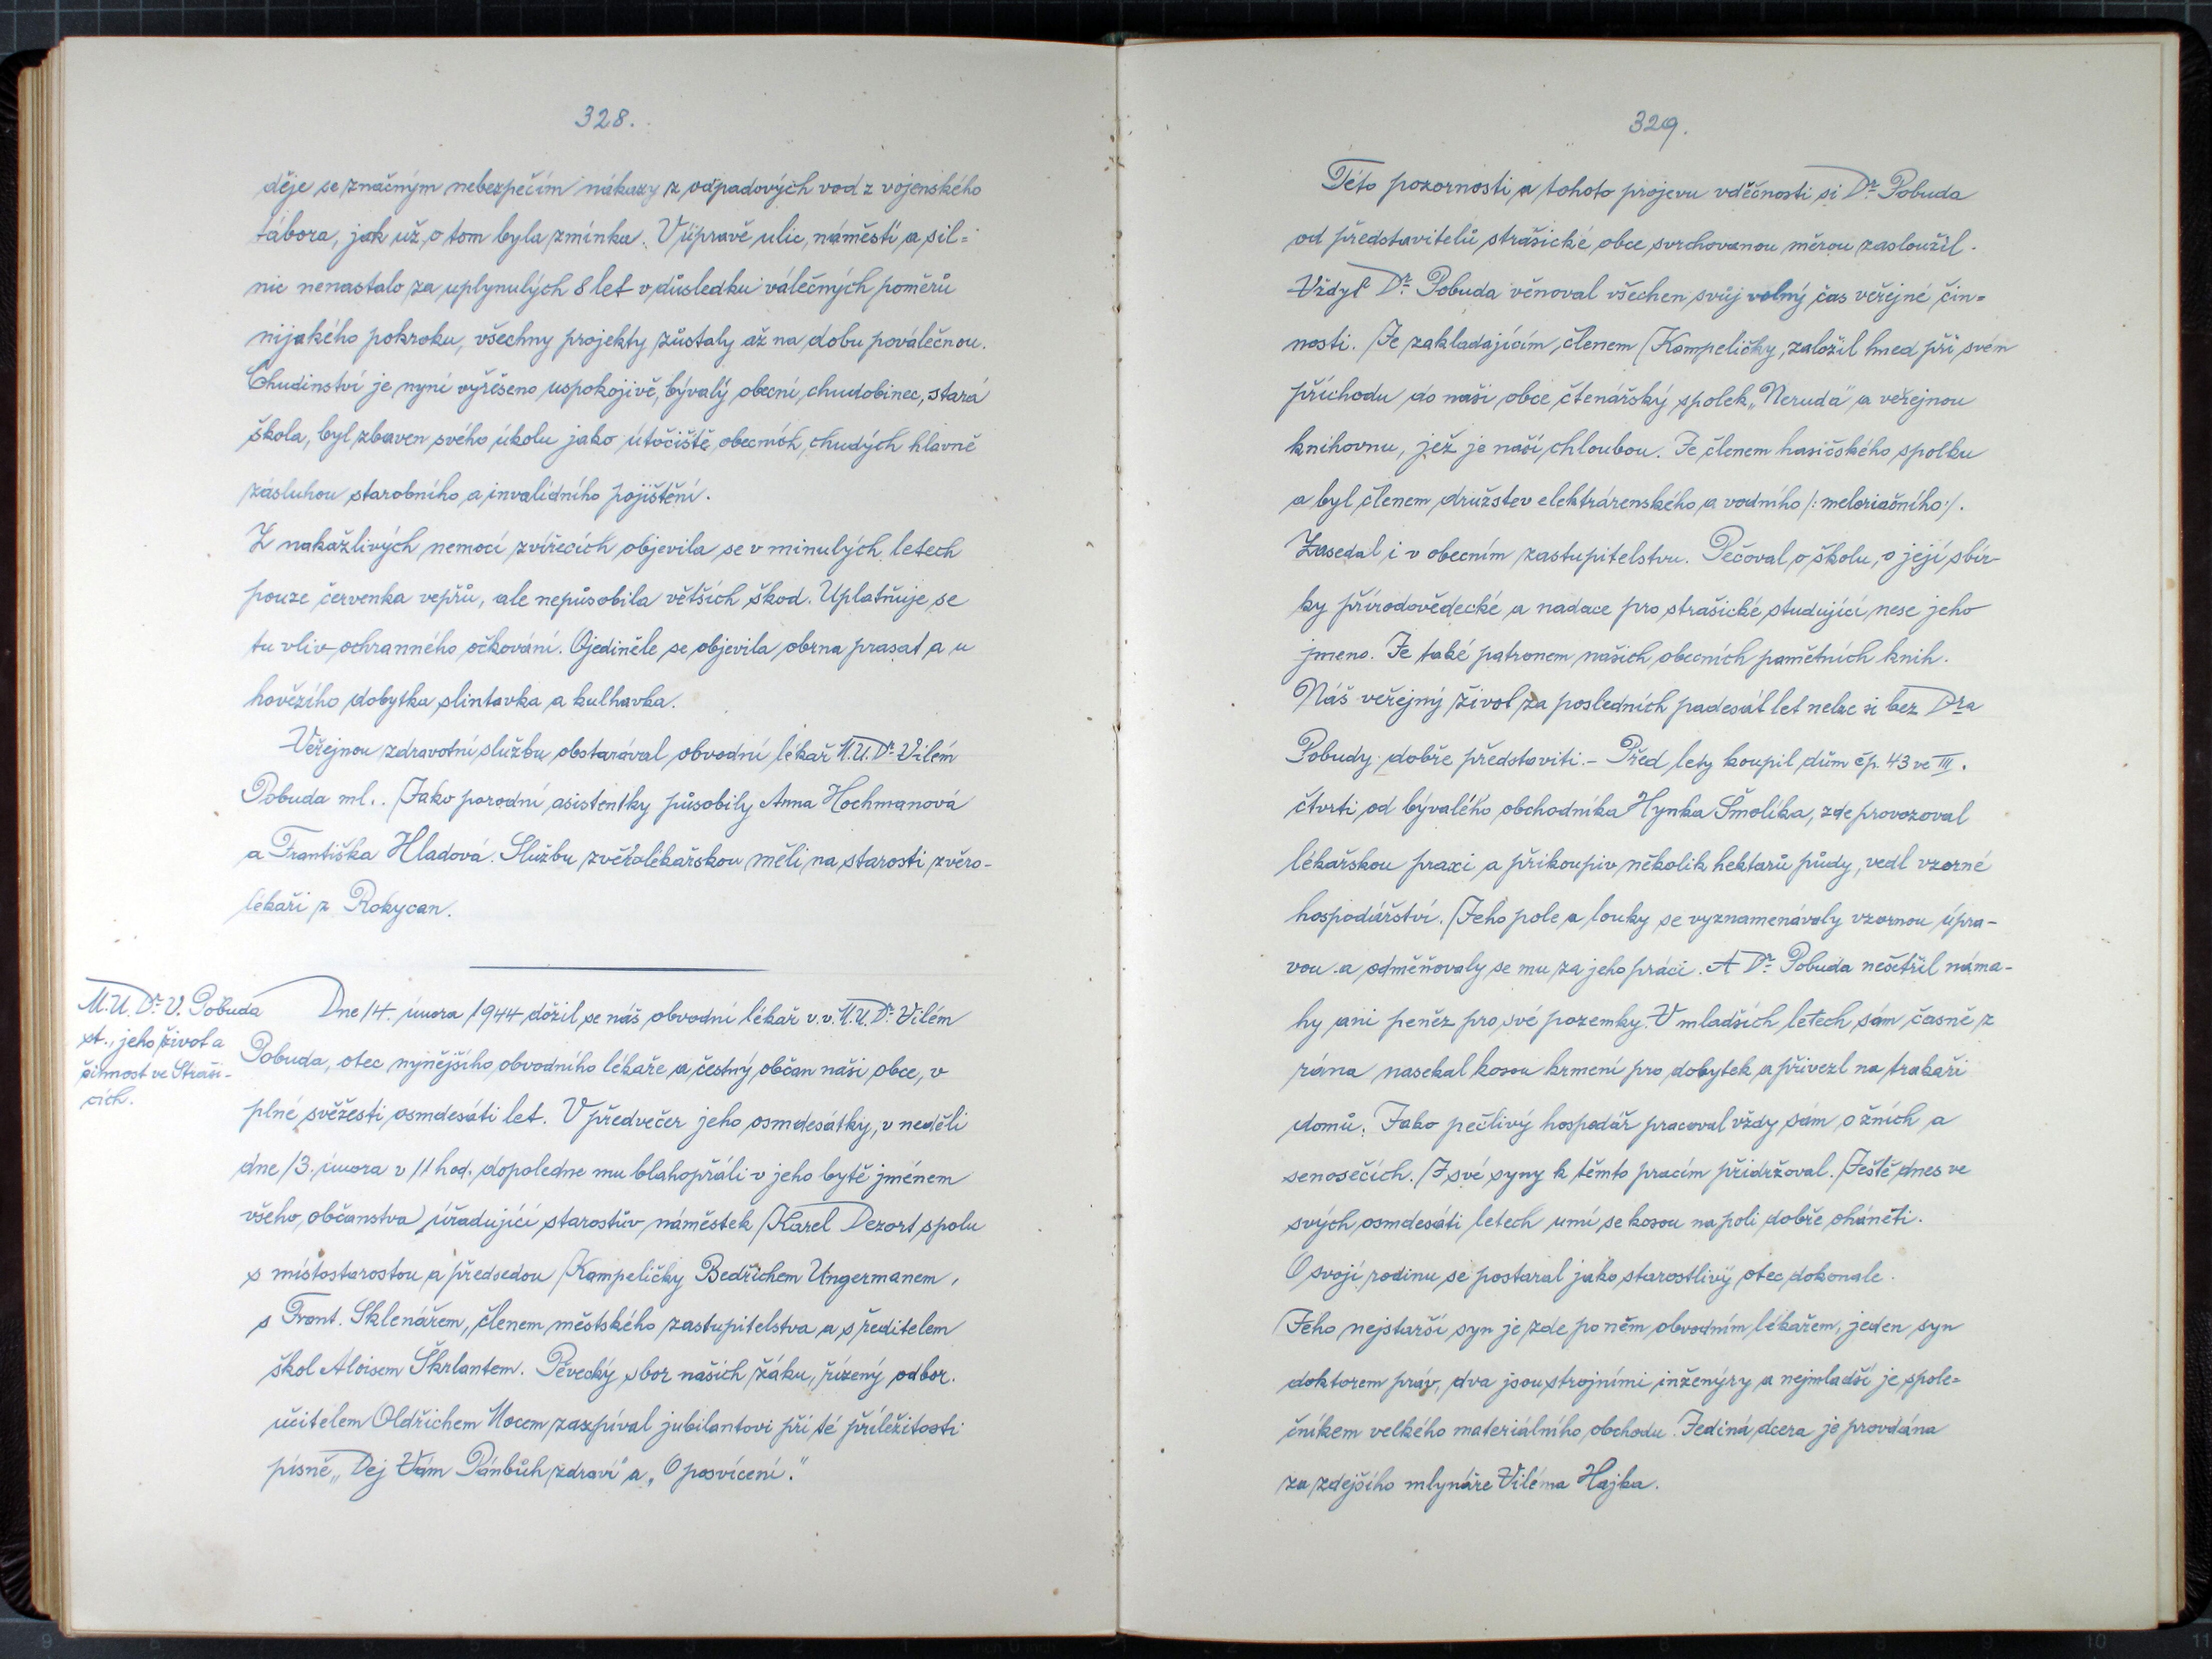 328.
děje se značným nebezpečím nákazy z odpadových vod z vojenského
tábora, jak už o tom byla zmínka. V úpravě ulic, náměstí a sil=
nic nenastalo za uplynulých 8 let v důsledku válečných poměrů
nijakého pokroku, všechny projekty zůstaly až na dobu poválečnou.
Chudinství je nyní vyřešeno uspokojivě, bývalý obecní chudobinec, stará
škola, byl zbaven svého úkolu jako útočiště obecních chudých hlavně
zásluhou starobního a invalidního pojištění.
Z nakažlivých nemocí zvířecích objevila se v minulých letech
pouze červenka vepřů, ale nepůsobila větších škod. Uplatňuje se
tu vliv ochranného očkování. Ojediněle se objevila obrna prasat a u
hovězího dobytka slintavka a kulhavka.
Veřejnou zdravotní službu obstarával obvodní lékař M.U.Dr. Vilém
Pobuda ml.. Jako porodní asistentky působily Anna Hochmanová
a Františka Hladová. Službu zvěrolékařskou měli na starosti zvěro-
lékaři z Rokycan.
M.U.Dr. V. Pobuda
st., jeho život a
činnost ve Straši-
cích.
Dne 14. února 1944 dožil se náš obvodní lékař v.v. M.U.Dr. Vilém
Pobuda, otec nynějšího obvodního lékaře a čestný občan naší obce, v
plné svěžesti osmdesáti let. V předvečer jeho osmdesátky, v neděli
dne 13. února v 11 hod. dopoledne mu blahopřáli v jeho bytě jménem
všeho občanstva úřadující starostův náměstek Karel Dezort spolu
s místostarostou a předsedou Kampeličky Bedřichem Ungermanem,
s Frant. Sklenářem, členem městského zastupitelstva a s ředitelem
škol Aloisem Škrlantem. Pěvecký sbor našich žáku, řízený odbor.
učitelem Oldřichem Mocem zazpíval jubilantovi při té příležitosti
písně „Dej Vám Pánbůh zdraví" a „O posvícení."
329.
Této pozornosti a tohoto projevu vděčnosti si Dr. Pobuda
od představitelů strašické obce svrchovanou měrou zasloužil.
Vždyť Dr. Pobuda věnoval všechen svůj volný čas veřejné čin=
nosti. Je zakladajícím členem Kampeličky, založil hned při svém
příchodu do naší obce čtenářský spolek „Neruda" a veřejnou
knihovnu, jež je naší chloubou. Je členem hasičského spolku
a byl členem družstev elektrárenského a vodního /:melioriačního:/.
Zasedal i v obecním zastupitelstvu. Pečoval o školu, o její sbír-
ky přírodovědecké a nadace pro strašické studující nese jeho
jmeno. Je také patronem našich obecních pamětních knih.
Náš veřejný život za posledních padesát let nelze si bez Dra
Pobudy dobře představiti. – Před lety koupil dům čp. 43 ve III.
čtvrti od bývalého obchodníka Hynka Šmolíka, zde provozoval
lékařskou praxi a přikoupiv několik hektarů půdy, vedl vzorné
hospodářství. Jeho pole a louky se vyznamenávaly vzornou úpra-
vou a odměňovaly se mu za jeho práci. A Dr. Pobuda nešetřil náma-
hy ani peněz pro své pozemky. V mladších letech sám časně z
rána nasekal kosou krmení pro dobytek a přivezl na trakaři
domů. Jako pečlivý hospodář pracoval vždy sám o žních a
senosečích. I své syny k těmto pracím přidržoval. Ještě dnes ve
svých osmdesáti letech umí se kosou na poli dobře oháněti.
O svoji rodinu se postaral jako starostlivý otec dokonale.
Jeho nejstarší syn je zde po něm obvodním lékařem, jeden syn
doktorem práv, dva jsou strojními inženýry a nejmladší je spole=
čníkem velkého materiálního obchodu. Jediná dcera je provdána
za zdejšího mlynáře Viléma Hajka.